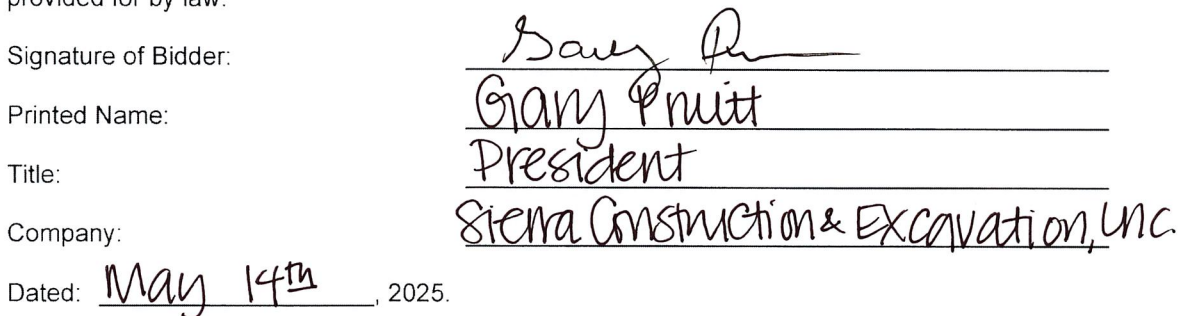 provided for by law.
Signature of Bidder: Gary
Printed Name: Gary Pruitt
Title: President
Company: Sierra Construction & Excavation, Inc.
Dated: May 14th, 2025.